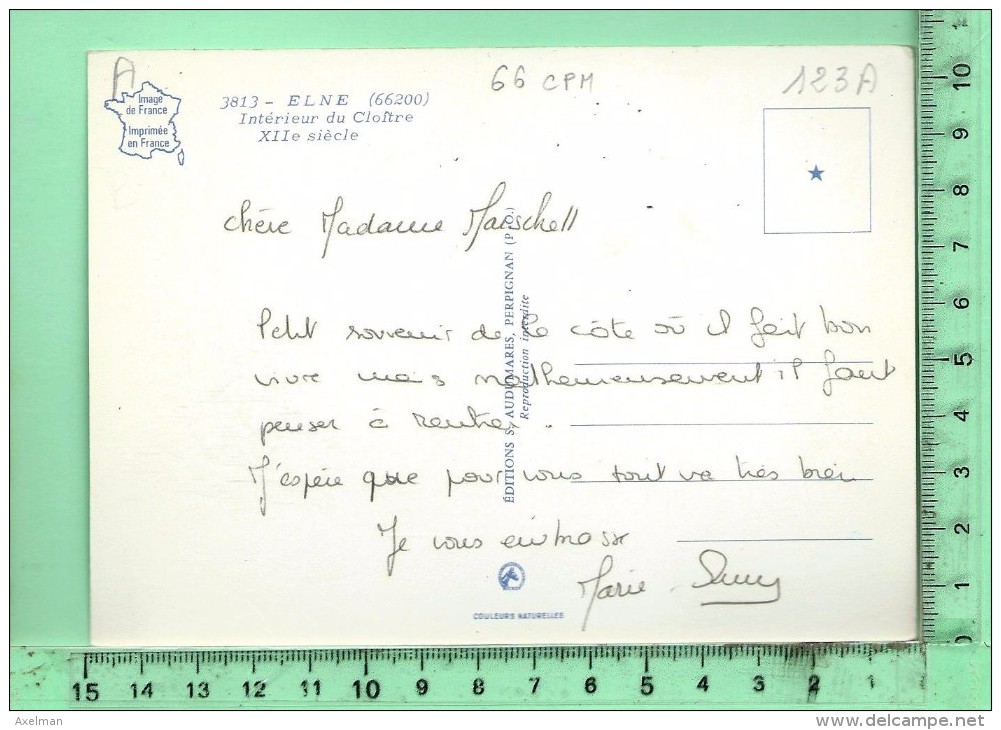 A
66 CPM
123A
Image
de France
Imprimée
en France
3813 - ELNE (66200)
Intérieur du Cloître
XIIe siècle
Chère Madame Marschell
Petit souvenir de la côte où il fait bon
vivre mais malheureusement il faut
penser à rentrer.
J'espère que pour vous tout va très bien
Je vous embrasse
Marie
ÉDITIONS S. AUDUMARES, PERPIGNAN (P.-O.)
Reproduction interdite
COULEURS NATURELLES
10
9
8
7
6
5
4
3
2
1
0
15 14 13 12 11 10 9 8 7 6 5 4 3 2 1
Axelman
www.delcampe.net